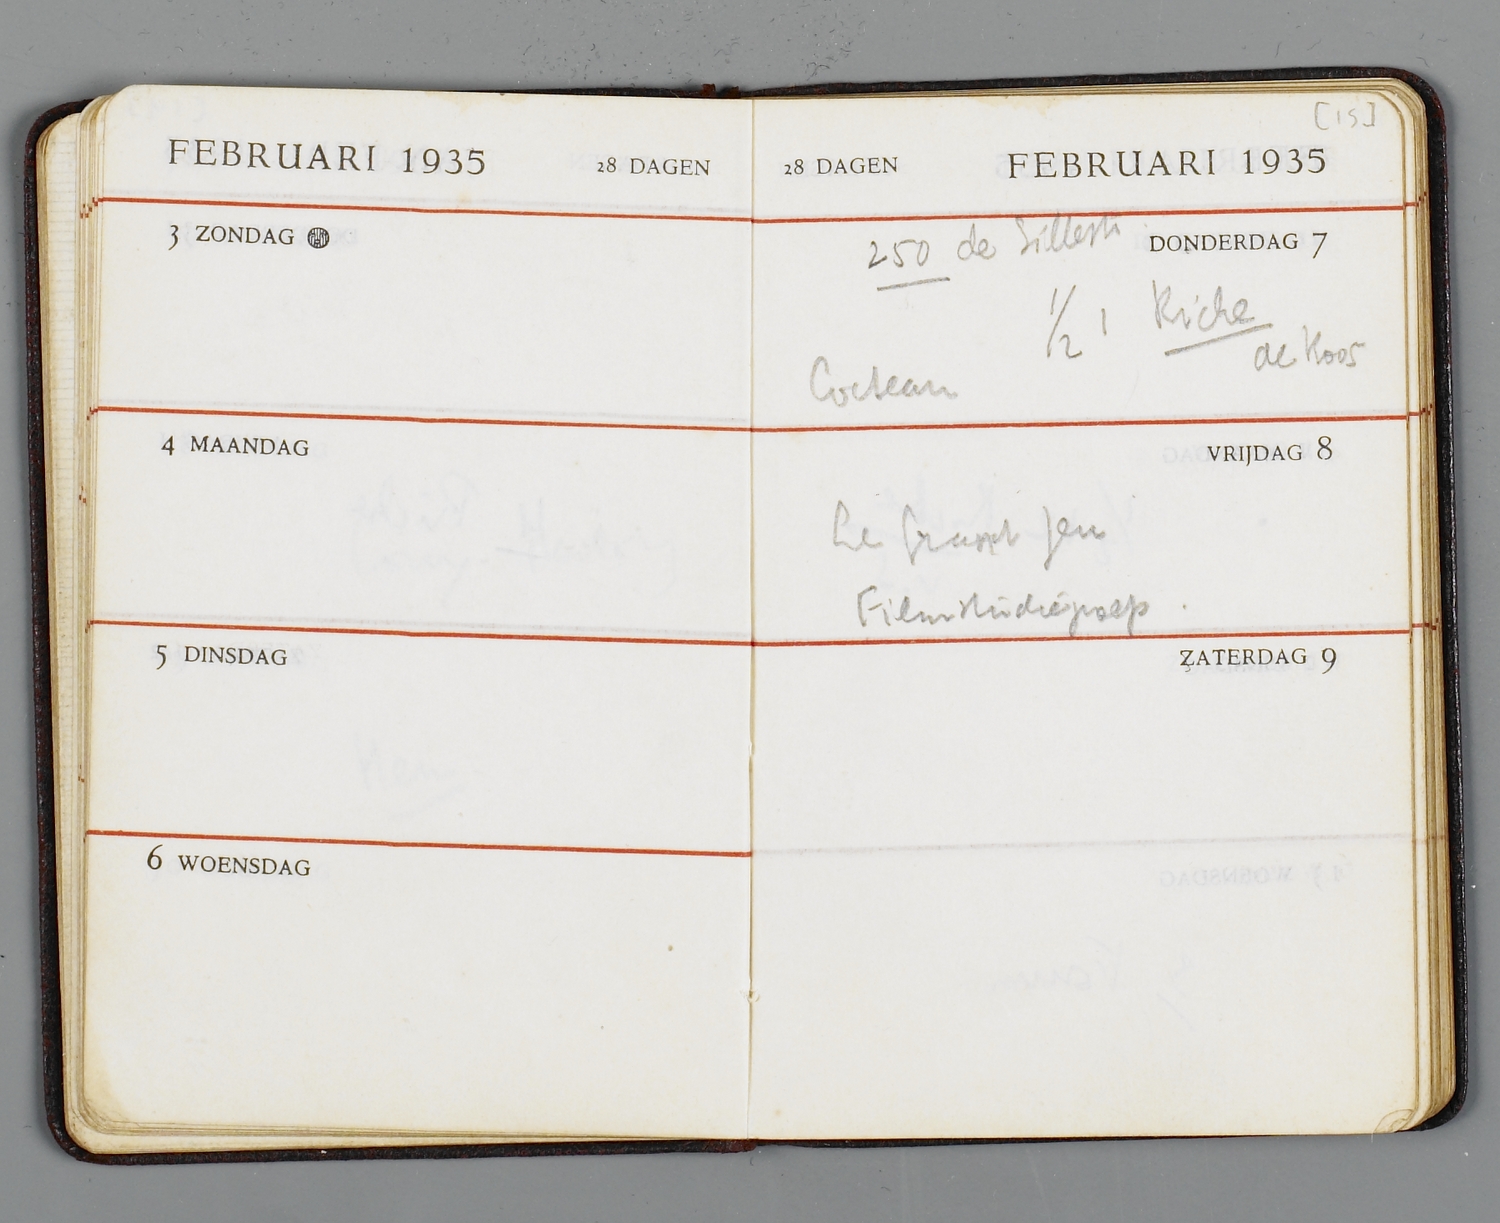 FEBRUARI 1935 28 DAGEN
3 ZONDAG
4 MAANDAG
5 DINSDAG
6 WOENSDAG
[15]
28 DAGEN FEBRUARI 1935
DONDERDAG 7
250 de
1/2 1 Riche
de Koos
Cocteau
VRIJDAG 8
Le Grand Jeu
Filmstudiegroep.
ZATERDAG 9